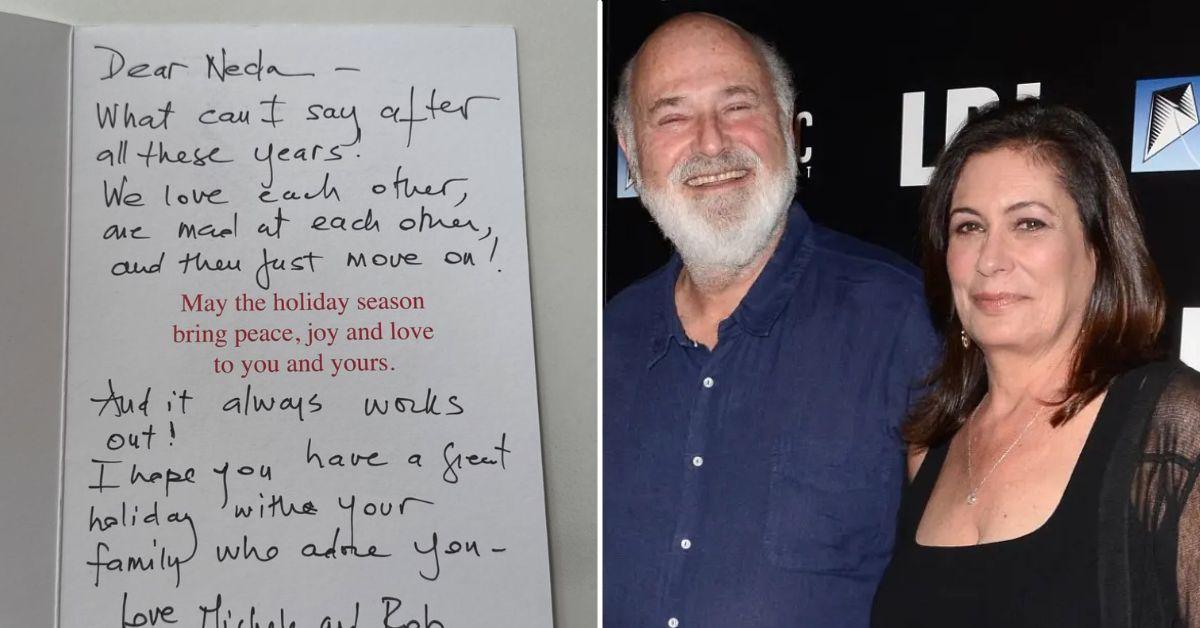 Dear Neda —
What can I say after
all these years.
We love each other,
are mad at each other,
and then just move on!
May the holiday season
bring peace, joy and love
to you and yours.
And it always works
out!
I hope you have a great
holiday withe your
family who adore you –
Love Michele and Rob
LBJ
C
T